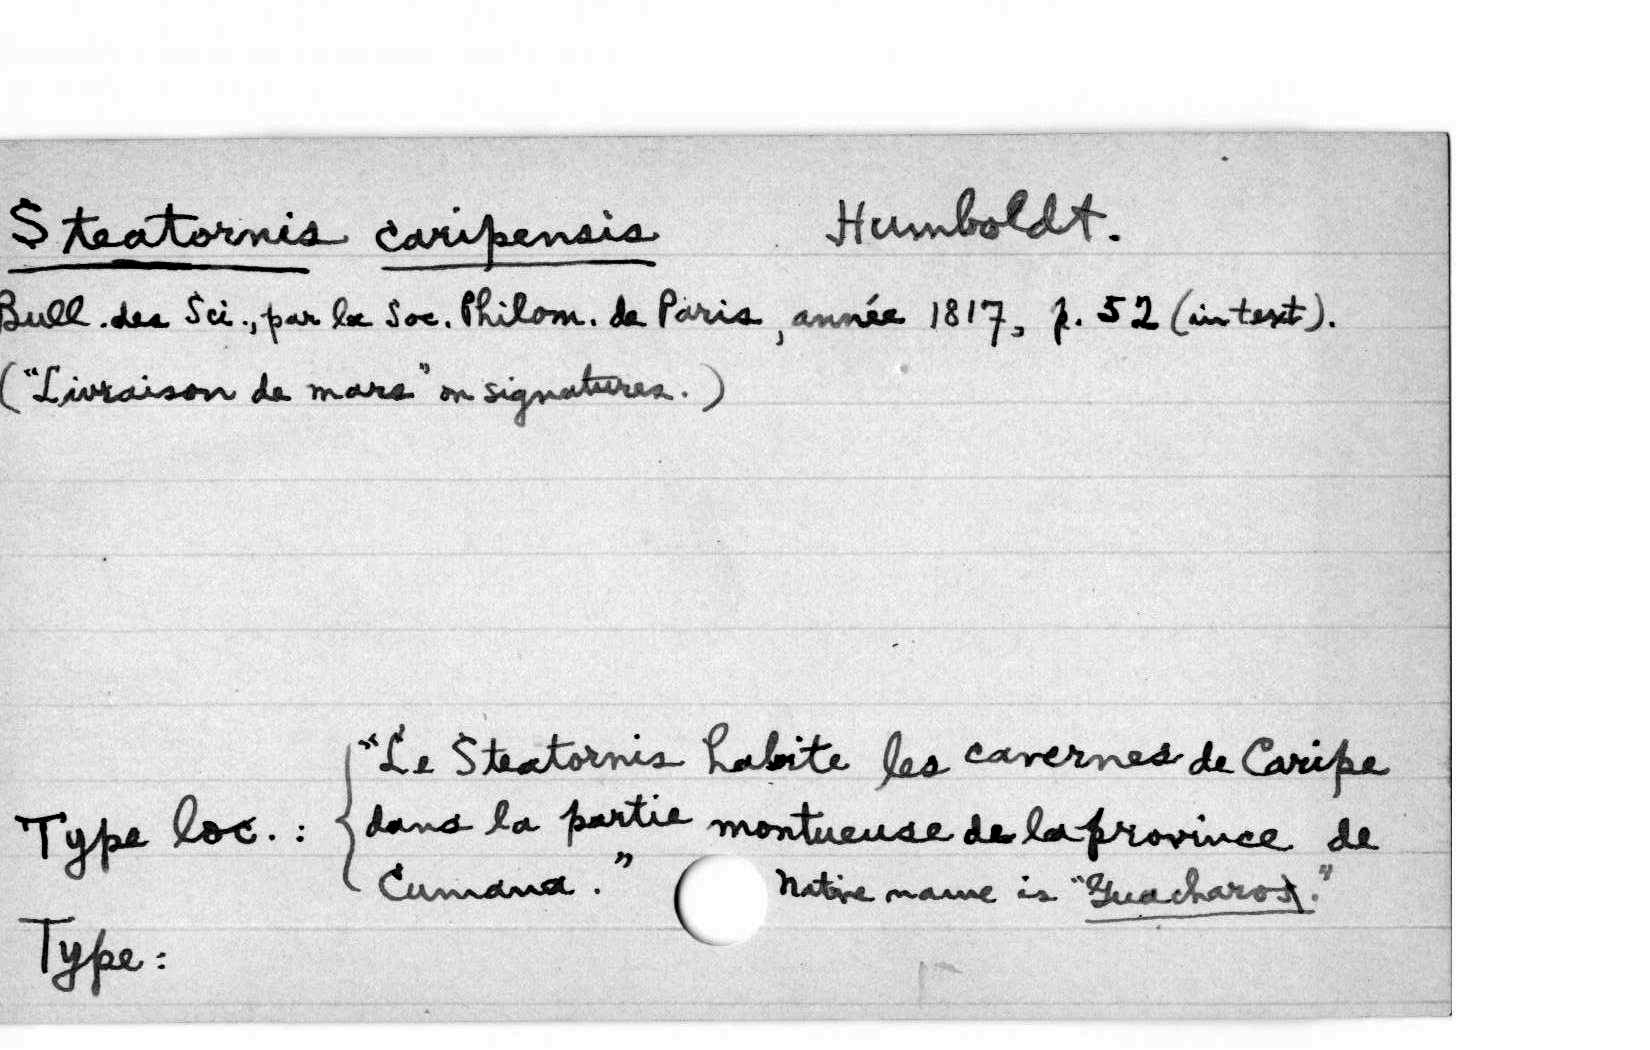 Steatornis caripensis Humboldt.
Bull. des Sci., par la Soc. Philom. de Paris, année 1817, p. 52 (in text).
("Livraison de mars" on signatures.)
"Le Steatornis habite les cavernes de Caripe
Type loc.: dans la partie montueuse de la province de
Cumana." Native name is "Guacharo."
Type: